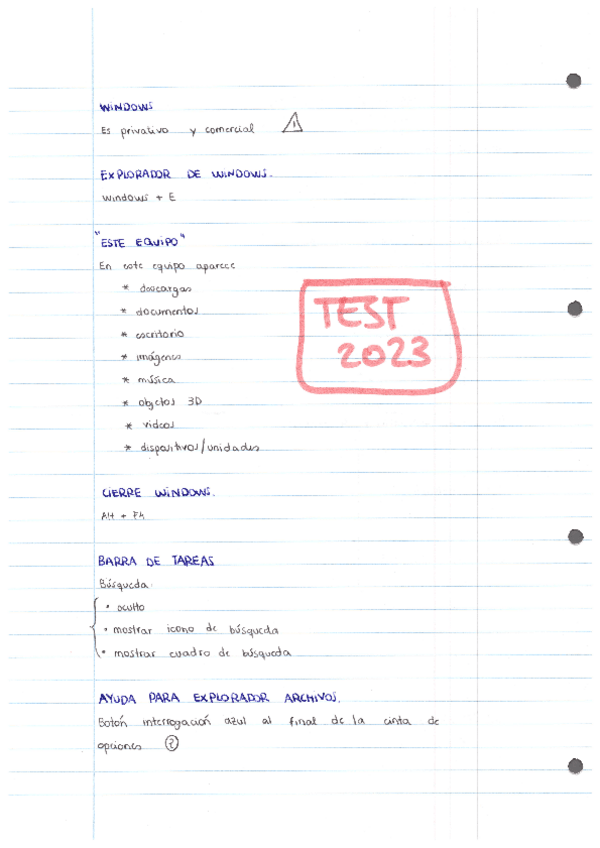 WINDOWS
Es privativo y comercial
EXPLORADOR DE WINDOWS.
Windows + E
"ESTE EQUIPO"
En este equipo aparece
* descargas
* documentos
* escritorio
* imágenes
* música
* objetos 3D
* videos
* dispositivos/unidades
TEST
2023
CIERRE WINDOWS.
Alt + F4
BARRA DE TAREAS
Búsqueda.
• oculto
• mostrar icono de búsqueda
• mostrar cuadro de búsqueda
AYUDA PARA EXPLORADOR ARCHIVOS.
Botón interrogación azul al final de la cinta de
opciones ?